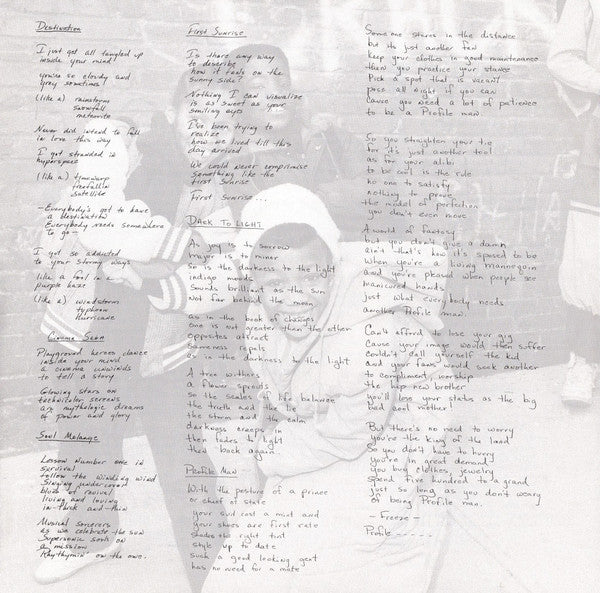 Destination
I just get all tangled up
inside your mind
you're so cloudy and
grey sometimes
(like a) rainstorm
snowfall
meteorite
Never did intend to fall
in love this way
I got stranded in
hyperspace
(like a) timewarp
freefallin
satellite
- Everybody's got to have
a destination
Everybody needs somewhere
to go -
I got so addicted
to your stormy ways
like a fool in a
purple haze
(like a) windstorm
typhoon
hurricane
Cinema Scan
Playground heroes dance
inside your mind
a cinema unwinds
to tell a story
Glowing stars on
technicolor screens
are mythologic dreams
of power and glory
Soul Melange
Lesson Number one in
survival
follow the winding wind
Singing undercover
blues of revival
living and loving
in-thick and-thin
Musical sorcerers
as we celebrate the sun
Supersonic souls on
a mission
Rhythymin' on the one.
First Sunrise
Is there any way
to describe
how it feels on the
sunny side?
Nothing I can visualize
is as sweet as your
smiling eyes
I've been trying to
realize
how we lived till this
day arrived
We could never compromise
Something like the
first Sunrise
First Sunrise...
Dark To Light
As joy is to sorrow
major is to minor
So is the darkness to the light
indigo moods
Sounds brilliant as the sun
Not far behind the moon
as in the book of changes
one is not greater than the other
opposites attract
Sameness repels
as in the darkness to the light
A tree withers
a flower sprouts
So the scales of life balance
the truth and the lie
the storm and the calm
darkness creeps in
then fades to light
then back again.
Profile Man
With the posture of a prince
or chief of state
your suit cost a mint and
your shoes are first rate
Shades the right tint
style up to date
such a good looking gent
has no need for a mate
Someone stares in the distance
but its just another fan
keep your clothes in good maintenance
then you practice your stance
Pick a spot that is vacant
pose all night if you can
Cause you need a lot of patience
to be a Profile man.
So you straighten your tie
for it's just another tool
as for your alibi
to be cool is the rule
no one to satisfy
nothing to prove
the model of perfection
you don't even move
A world of fantasy
but you don't give a damn
ain't that's how it's sposed to be
When you're a living mannequin
and you're pleased when people see
manicured hands
just what every body needs
another Profile man.
Can't afford to lose your gig
Cause your image would then suffer
Couldn't call yourself the kid
and your fans would seek another
to compliment, worship
the hip new brother
you'll lose your status as the big
bad cool mother!
But there's no need to worry
you're the king of the land
So you don't have to hurry
you're in great demand
you buy clothes, jewelry
spend five hundred to a grand
just so long as you don't weary
of being Profile man.
- Freeze -
Profile - - - - - -